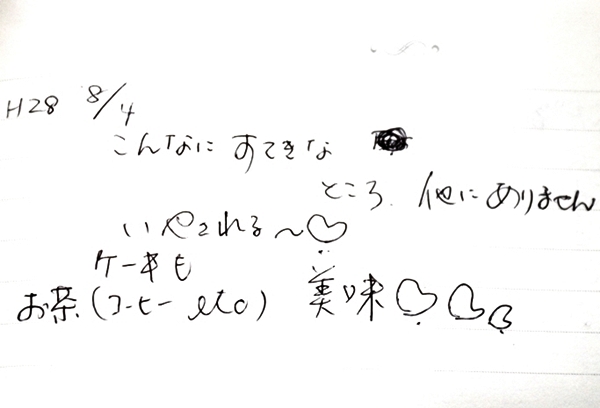 H28 8/4
こんなに すてきな
ところ、他にありません
いやされる~♡
ケーキも
お茶(コーヒー etc) 美味♡♡♡